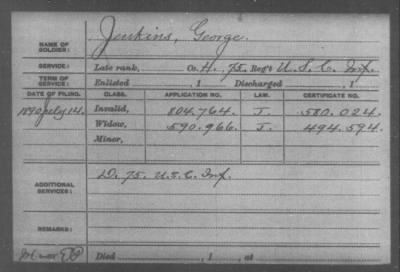 NAME OF SOLDIER: Jenkins, George.
SERVICE: Late rank, Co. H, 75 Reg't U. S. C. Inf.
TERM OF SERVICE: Enlisted , 1 Discharged , 1
DATE OF FILING. CLASS. APPLICATION NO. LAW. CERTIFICATE NO.
1890 July 14. Invalid, 804.764. J. 580.024.
Widow, 590.966. J. 494.594.
Minor,
ADDITIONAL SERVICES: D. 75. U.S.C. Inf.
REMARKS:
Died , 1 , at